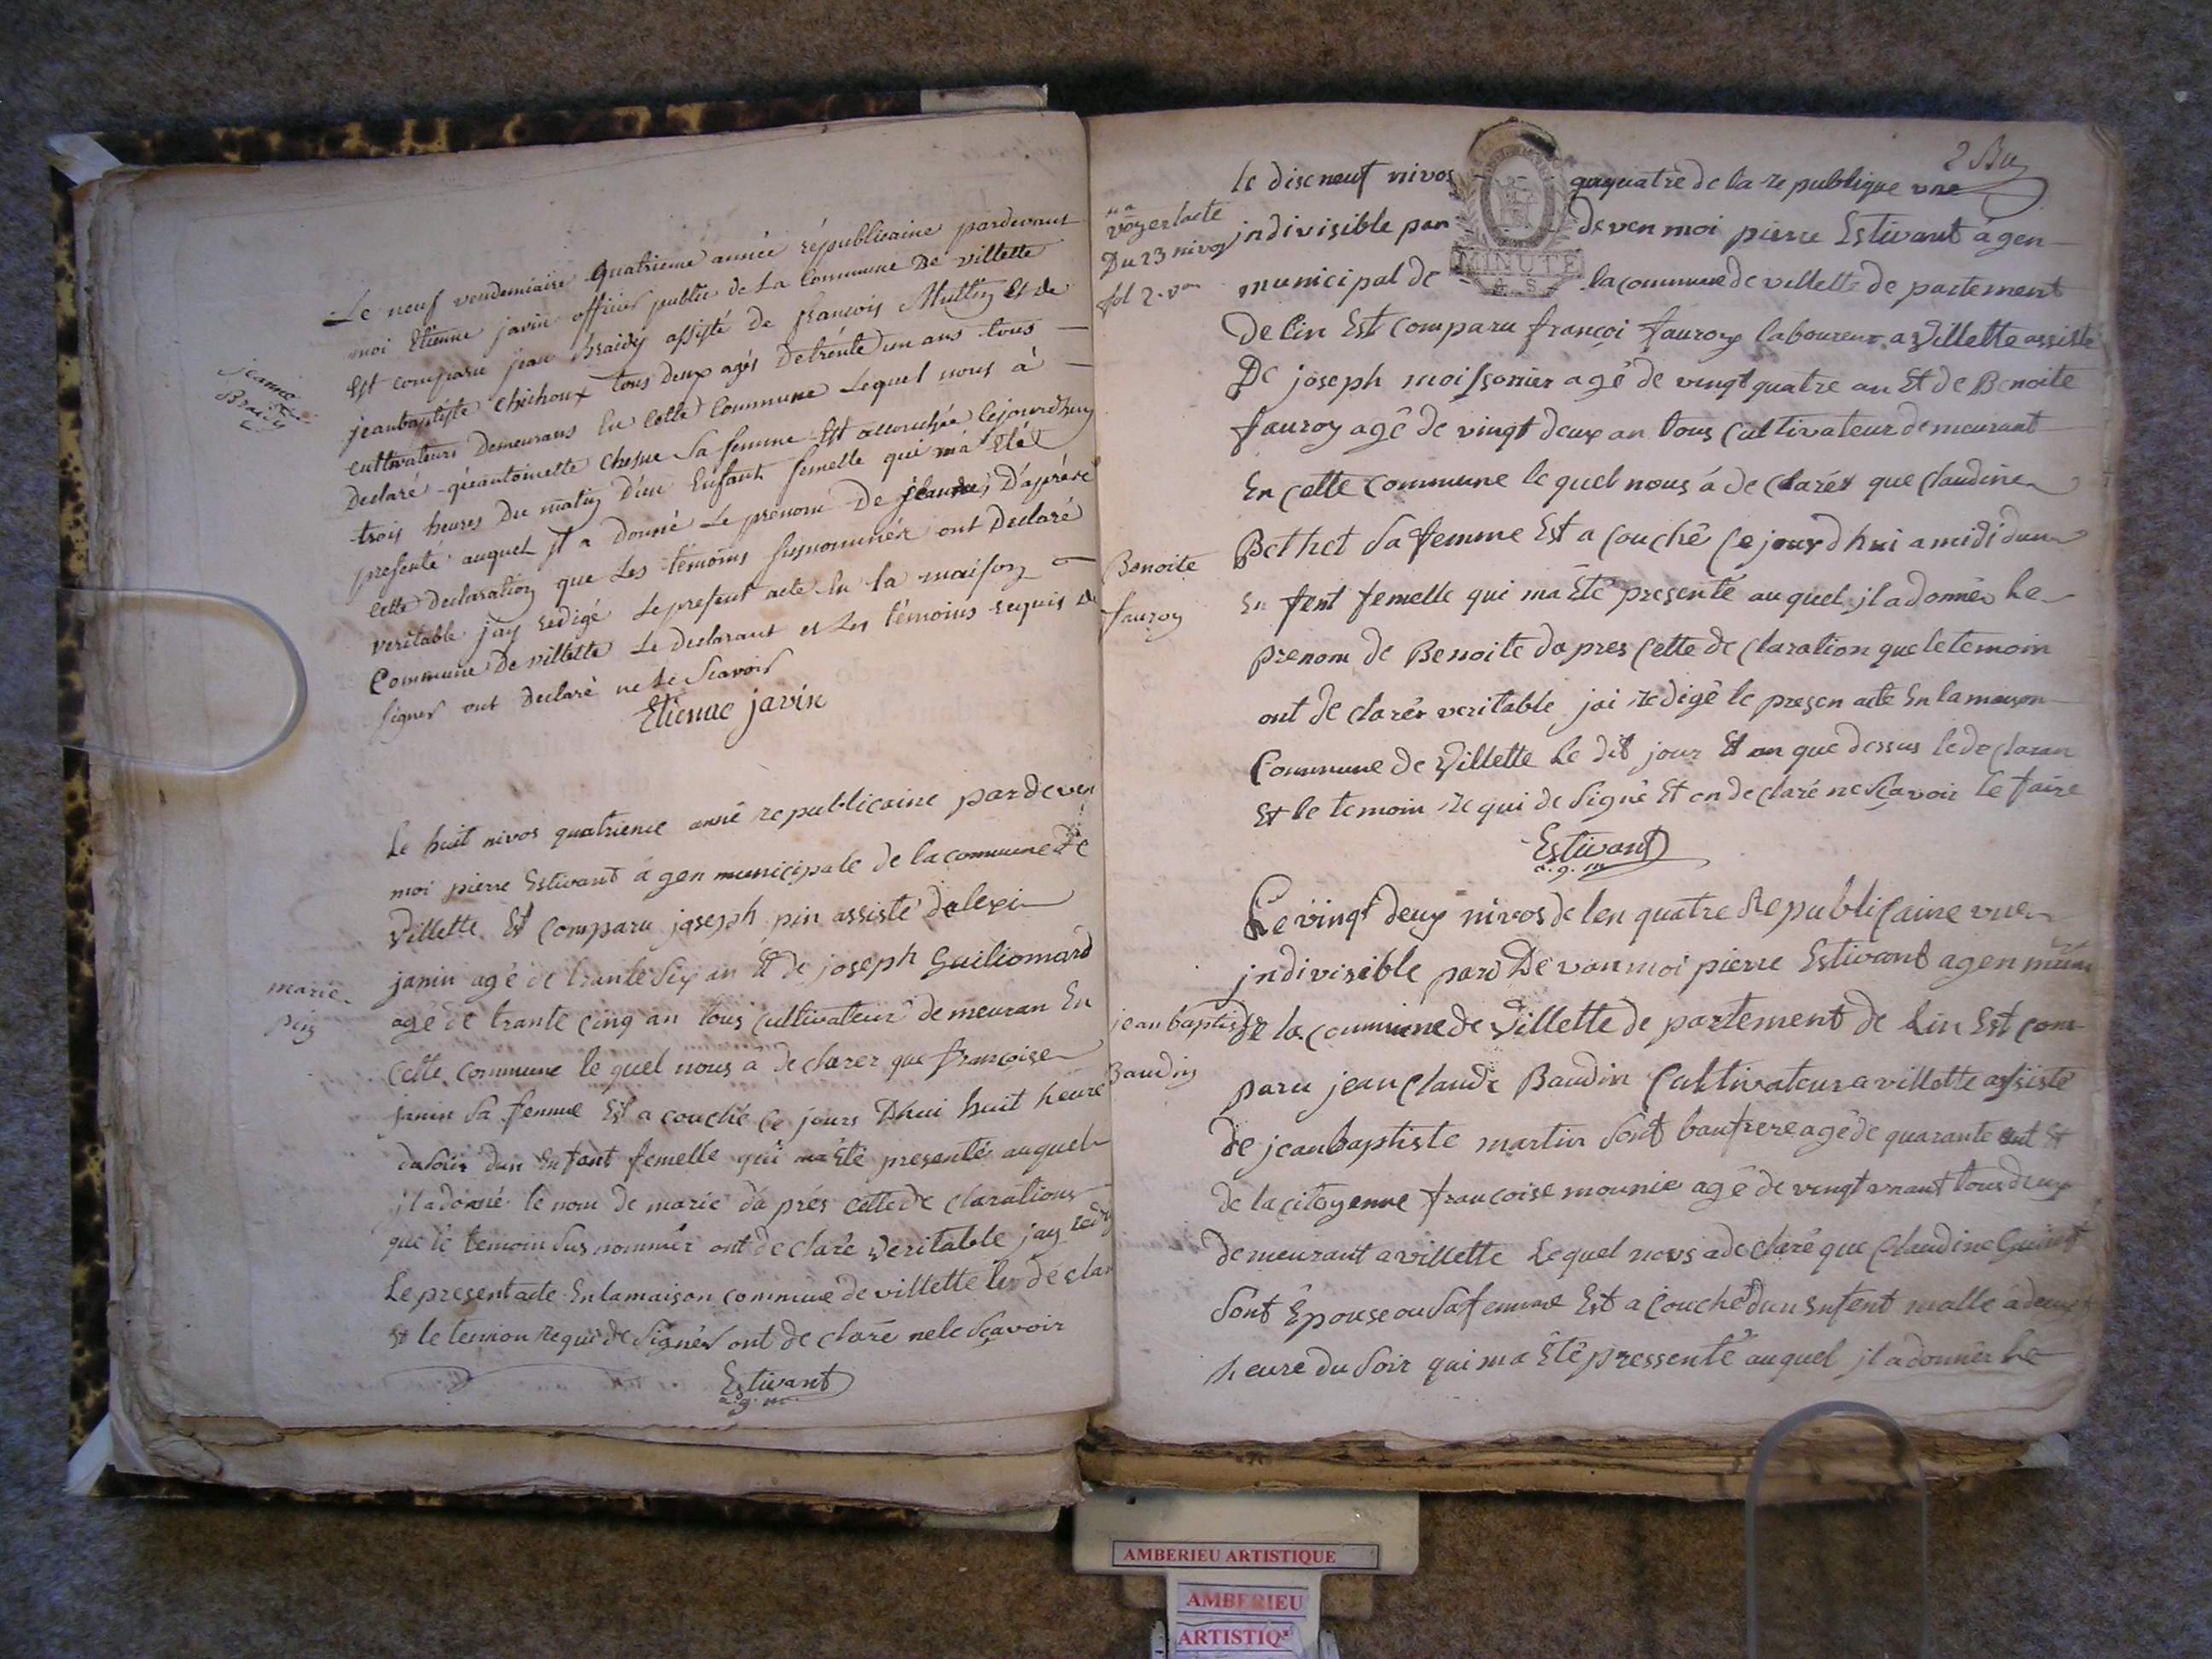 Jeanne
Braidy
Le neuf vendemiaire quatrieme année républicaine pardevant
moi Etienne javin officier public de La Commune De villette
Est comparu jean Braidy assisté de francois Muttin et de
jeanbaptiste chichoux tous deux agés detrente un ans tous
cultivateurs demeurans En Cette Commune Lequel nous à
declaré qu'eantoinette chesne sa femme Est accouchée cejourdhuy
trois heures Du matin D'un Enfant femelle qui m'a Eté
presenté auquel jl a donné Le prenom De jeanne, D'aprèse
cette declaration que Les témoins susnommés ont Declaré
veritable jay redigé Le present acte En la maison
Commune De villette Le declarant et Les témoins requis de
signer ont Declaré ne Le Scavoir
Etienne javin
marie
pin
Le huit nivos quatrieme anné republicaine par de ven
moi pierre Estivant a gen municipale de la commune de
Villette Est comparu joseph pin assisté dalexi
janin agé de trante six an Et de joseph Guiliomard
agé de trante cinq an tous cultivateur demeuran En
cette commune le quel nous a declarer que francoise
janin sa femme Est a couché ce jours Dhui huit heure
du soir dun Enfant femelle qui ma Eté presenté auquel
jl adonné le nom de marie da prés cette de clarations
que le temoin sus nommér ont declaré veritable jay redi
Le present acte En la maison commune de villette les déclar
Et le temion requi de Signér ont de claré ne le Sçavoir
Estivant
a. g. m.
2 Bu
voyez lacte
Du 23 nivos
fol 2. v
le disc neuf nivos quatre de la republique une
jndivisible par deven moi pierre Estivant a gen
MINUTE
municipal de la commune de villette de partement
De lin Est comparu françoi fauroy laboureur a villette assisté
De joseph moissonnier agé de vingt quatre an Et de Benoite
fauroy agé de vingt deux an tous cultivateur demeurant
En cette commune le quel nous á de clarér que claudine
Benoite
fauroy
Bethet sa femme Est a couché ce jour d hui a midi dun
En fent femelle qui ma Eté presenté au quel jl a donnér le
prenom de Benoite da pres cette de claration que le temoin
ont de clarér veritable jai redigé le presen acte En la maison
Commune de Villette Le dit jour Et an que dessus le declaran
Et le temoin re qui de signé Et on declaré ne Sçavoir le faire
Estivant
a. g. m
Le vingt deux nivos de len quatre Republicaine une
jndivisible pard Devan moi pierre Estivant agen muni
jean baptiste
Baudin
De la commune de Villette de partement de Lin Est com
paru jean claude Baudin Cultivateur a villette assisté
de jean baptiste martin sont baufrere agé de quarante ent Et
de la citoyenne francoise mounie agé de vingt unant tous deux
demeurant a villette Lequel nous a declaré que Claudine
sont Epouse ou sa femme Est a couché dun Enfent malle a deux
heure du soir qui ma Eté pressenté auquel jl a donnér le
AMBERIEU ARTISTIQUE
AMBERIEU
ARTISTIQ